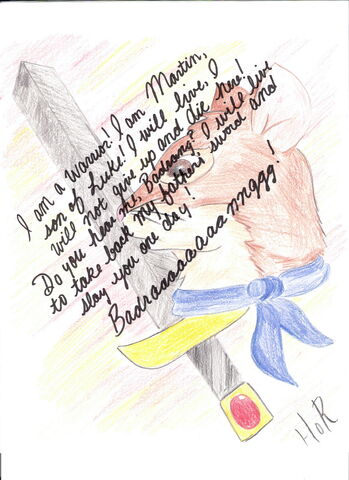 I am a Warrior! I am Martin,
son of Luke! I will live. I
will not give up and die here!
Do you hear me, Badrang? I will live
to take back my father's sword and
slay you one day!
Badraaaaaaaaannnggg!
HoR